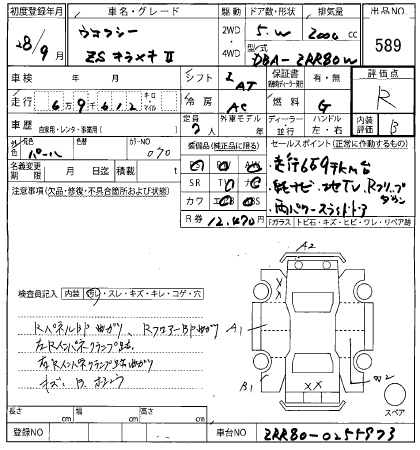 初度登録年月 車名・グレード 駆動 ドア数・形状 排気量 出品NO
28/9月 ヴォクシー 2WD 5.W 2000cc 589
ZSキラメキⅡ 4WD 型式 DBA-ZRR80W
車検 年 月 シフト AT 保証書 有・無 評価点
走行 キロ・マイル 冷房 AC 燃料 G R
車歴 自家用・レンタ・事業用 定員 7人 外車モデル 年 ディーラー・並行 ハンドル 左・右 内装評価 B
外装色 パール 色替 カラーNO 070 装備品(純正品に限る) セールスポイント(正常に作動するもの)
名義変更期限 月迄 積載 t SR TV ナビ
注意事項(欠品・修復・不具合箇所および状態) カワ エアB ABS 両パワースライドドア
R券 12,470円 Fガラス トビ石・キズ・ヒビ・ワレ・リペア跡
A2
検査員記入 内装 汚レ・スレ・キズ・キレ・コゲ・穴
RパネルBP曲がり、RフロアーBP曲がり A1
左Rインパネクランプ跡
右Rインパネクランプ跡曲がり B1 XX W2
キズ、B、ホシュウ スペア
長さ cm 幅 cm 高さ cm
登録NO 車台NO ZRR80-0255873